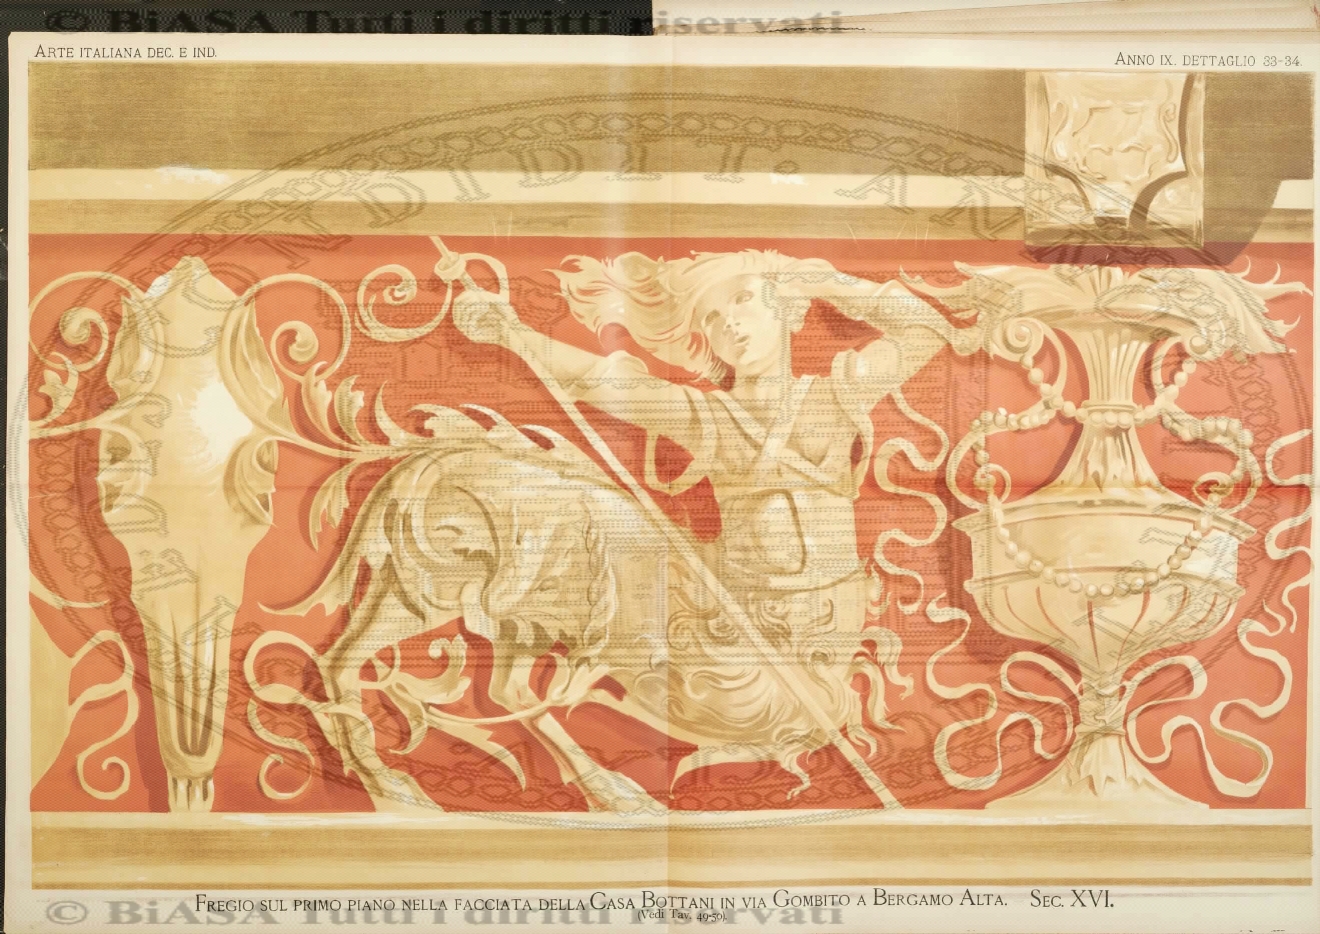 © BiASA Tutti i diritti riservati
ARTE ITALIANA DEC. E IND.
ANNO IX. DETTAGLIO 33-34.
CONDIDIT. AN
FREGIO SUL PRIMO PIANO NELLA FACCIATA DELLA CASA BOTTANI IN VIA GOMBITO A BERGAMO ALTA. SEC. XVI.
(Vedi Tav. 49-50).
© BiASA Tutti i diritti riservati